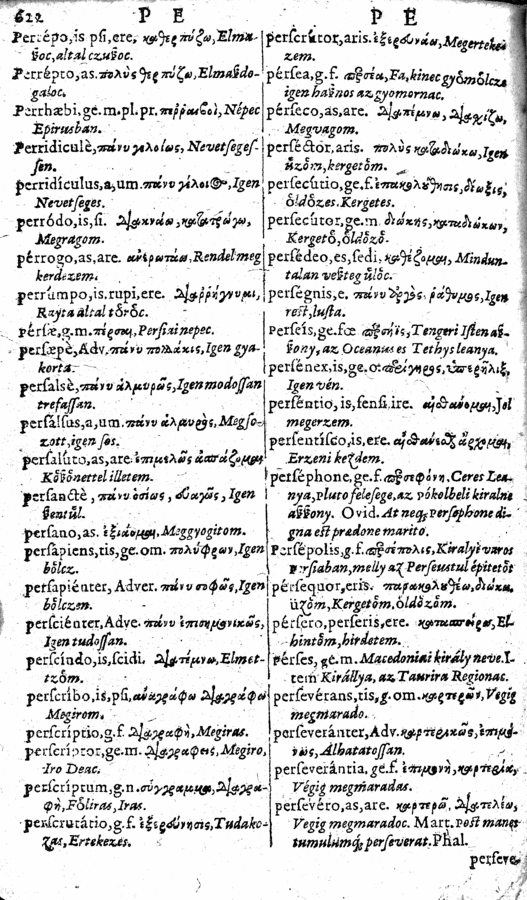 622
P E
P E
Perrépo, is psi, ere, καθερπύζω, Elma-
ſzoc, altal czuſzoc.
Perrépto, as. πολὺς ἑρπύζω, Elmaſzdo-
galoc.
Perrhæbi, ge. m. pl. pr. περραιβοὶ, Népec
Epirusban.
Perridiculè, πάνυ γελοίως, Nevetſeges-
ſen.
perridículus, a, um. πάνυ γελοῖος, Igen
Nevetſeges.
perródo, is, ſi. διακνάω, κατατρώγω,
Megragom.
pérrogo, as, are. ἀνερωτάω, Rendel meg
kerdezem.
perrúmpo, is. rupi, ere. διαῤῥήγνυμι,
Rayta által tőrőc.
Pérſæ, g. m. πέρσαι, Perſiai nepec.
perſæpè, Adv. πάνυ πολλάκις, Igen gya-
korta.
perſalsè, πάνυ ἁλμυρῶς, Igen modoſſan
trefaſſan.
perſalſus, a, um. πάνυ ἁλμυρὸς, Megſo-
zott, igen ſos.
perſalúto, as, are. ἐπιμελῶς ἀσπάζομαι,
Kőſzőnettel illetem.
perſanctè, πάνυ ὁσίως, εὐαγῶς, Igen
ſzentűl.
perſano, as. ἐξιάομαι, Meggyogitom.
perſapiens, tis, ge. om. πολύφρων, Igen
bőlcz.
perſapiénter, Adver. πάνυ σοφῶς, Igen
bőlczen.
perſciénter, Adve. πάνυ ἐπιστημονικῶς,
Igen tudoſſan.
perſcíndo, is, ſcidi. διατέμνω, Elmet-
tzőm.
perſcríbo, is, pſi, ἀναγράφω διαγράφω
Megirom.
perſcríptio, g. f. διαγραφὴ, Megiras.
perſcríptor, ge. m. διαγραφεὺς, Megiro,
Iro Deac.
perſcríptum, g. n. σύγγραμμα, διαγρα-
φὴ, Főliras, Iras.
perſcrutátio, g. f. ἐξερεύνησις, Tudako-
zas, Ertekezes.
perſcrútor, aris. ἐξερευνάω, Megertekei
zem.
pérſea, g. f. περσέα, Fa, kinec győmőlcze
igen haſznos az gyomornac.
pérſeco, as, are. διατέμνω, διασχίζω,
Megvagom.
perſéctor, aris. πολὺς καταδιώκω, Igen
űzőm, kergetőm.
perſecútio, ge. f. ἐπακολούθησις, δίωξις,
őldőzes. Kergetes.
perſecútor, ge. m. διώκτης, καταδιώκων,
Kergető, őldőző.
perſédeo, es, ſedi, καθέζομαι, Mindun-
talan veſzteg űlőc.
perſégnis, e. πάνυ ἀργὸς, ῥάθυμος, Igen
reſt, luſta.
Perſeís, ge. fœ. περσηῒς, Tengeri Iſten aſz-
ſzony, az Oceanus es Tethys leanya.
perſénex, is, ge. o. περίγηρος, ὑπερῆλιξ,
Igen vén.
perſéntio, is, ſenſi. ire. αἰσθάνομαι, Jol
megerzem.
perſentíſco, is, ere. αἰσθάνεσθαι ἄρχομαι,
Erzeni kezdem.
perſéphone, ge. f. περσεφόνη. Ceres Lea-
nya, Pluto feleſege, az pókolbeli kiralne
aſzſzony. Ovid. At neq; Perſephone di-
gna est prædone marito.
Perſépolis, g. f. περσέπολις, Kiralyi varos
Perſiaban, melly az Perſeustul épitetőt
pérſequor, eris. παρακολουθέω, διώκω,
űzőm, Kergetőm, őldőzőm.
pérſero, perſeris, ere. κατασπείρω, El-
hintőm, hirdetem.
pérſes, gé. m. Macedoniai király neve. I-
tem Királlya, az Taurira Regionac.
perſevérans, tis, g. om. καρτερῶν, Vegig
megmarado.
perſeveránter, Adv. καρτερικῶς, ἐπιμό-
νως, Alhatatoſſan.
perſeverántia, ge. f. ἐπιμονὴ, καρτερία,
Végig megmaradas.
perſevéro, as, are. καρτερῶ, διατελέω,
Vegig megmaradoc. Mart. Post manes
tumulumq; perſeverat. Phal.
perſeve-